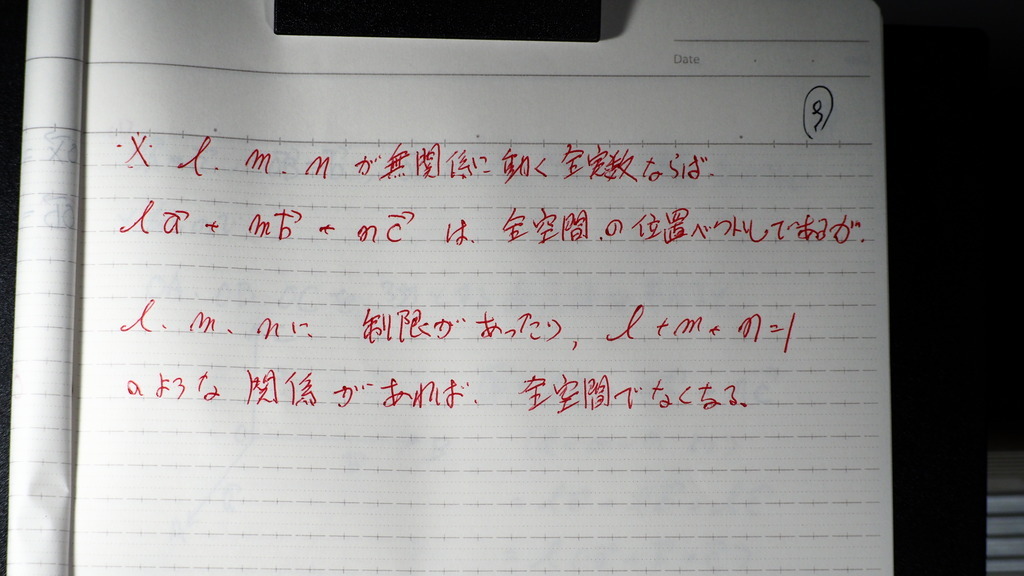 Date
③
※ l. m. n が無関係に動く全実数ならば.
l a⃗ + m b⃗ + n c⃗ は. 全空間.の位置ベクトルであるが.
l. m. n に 制限があったり, l + m + n = 1
のような 関係があれば. 全空間でなくなる.